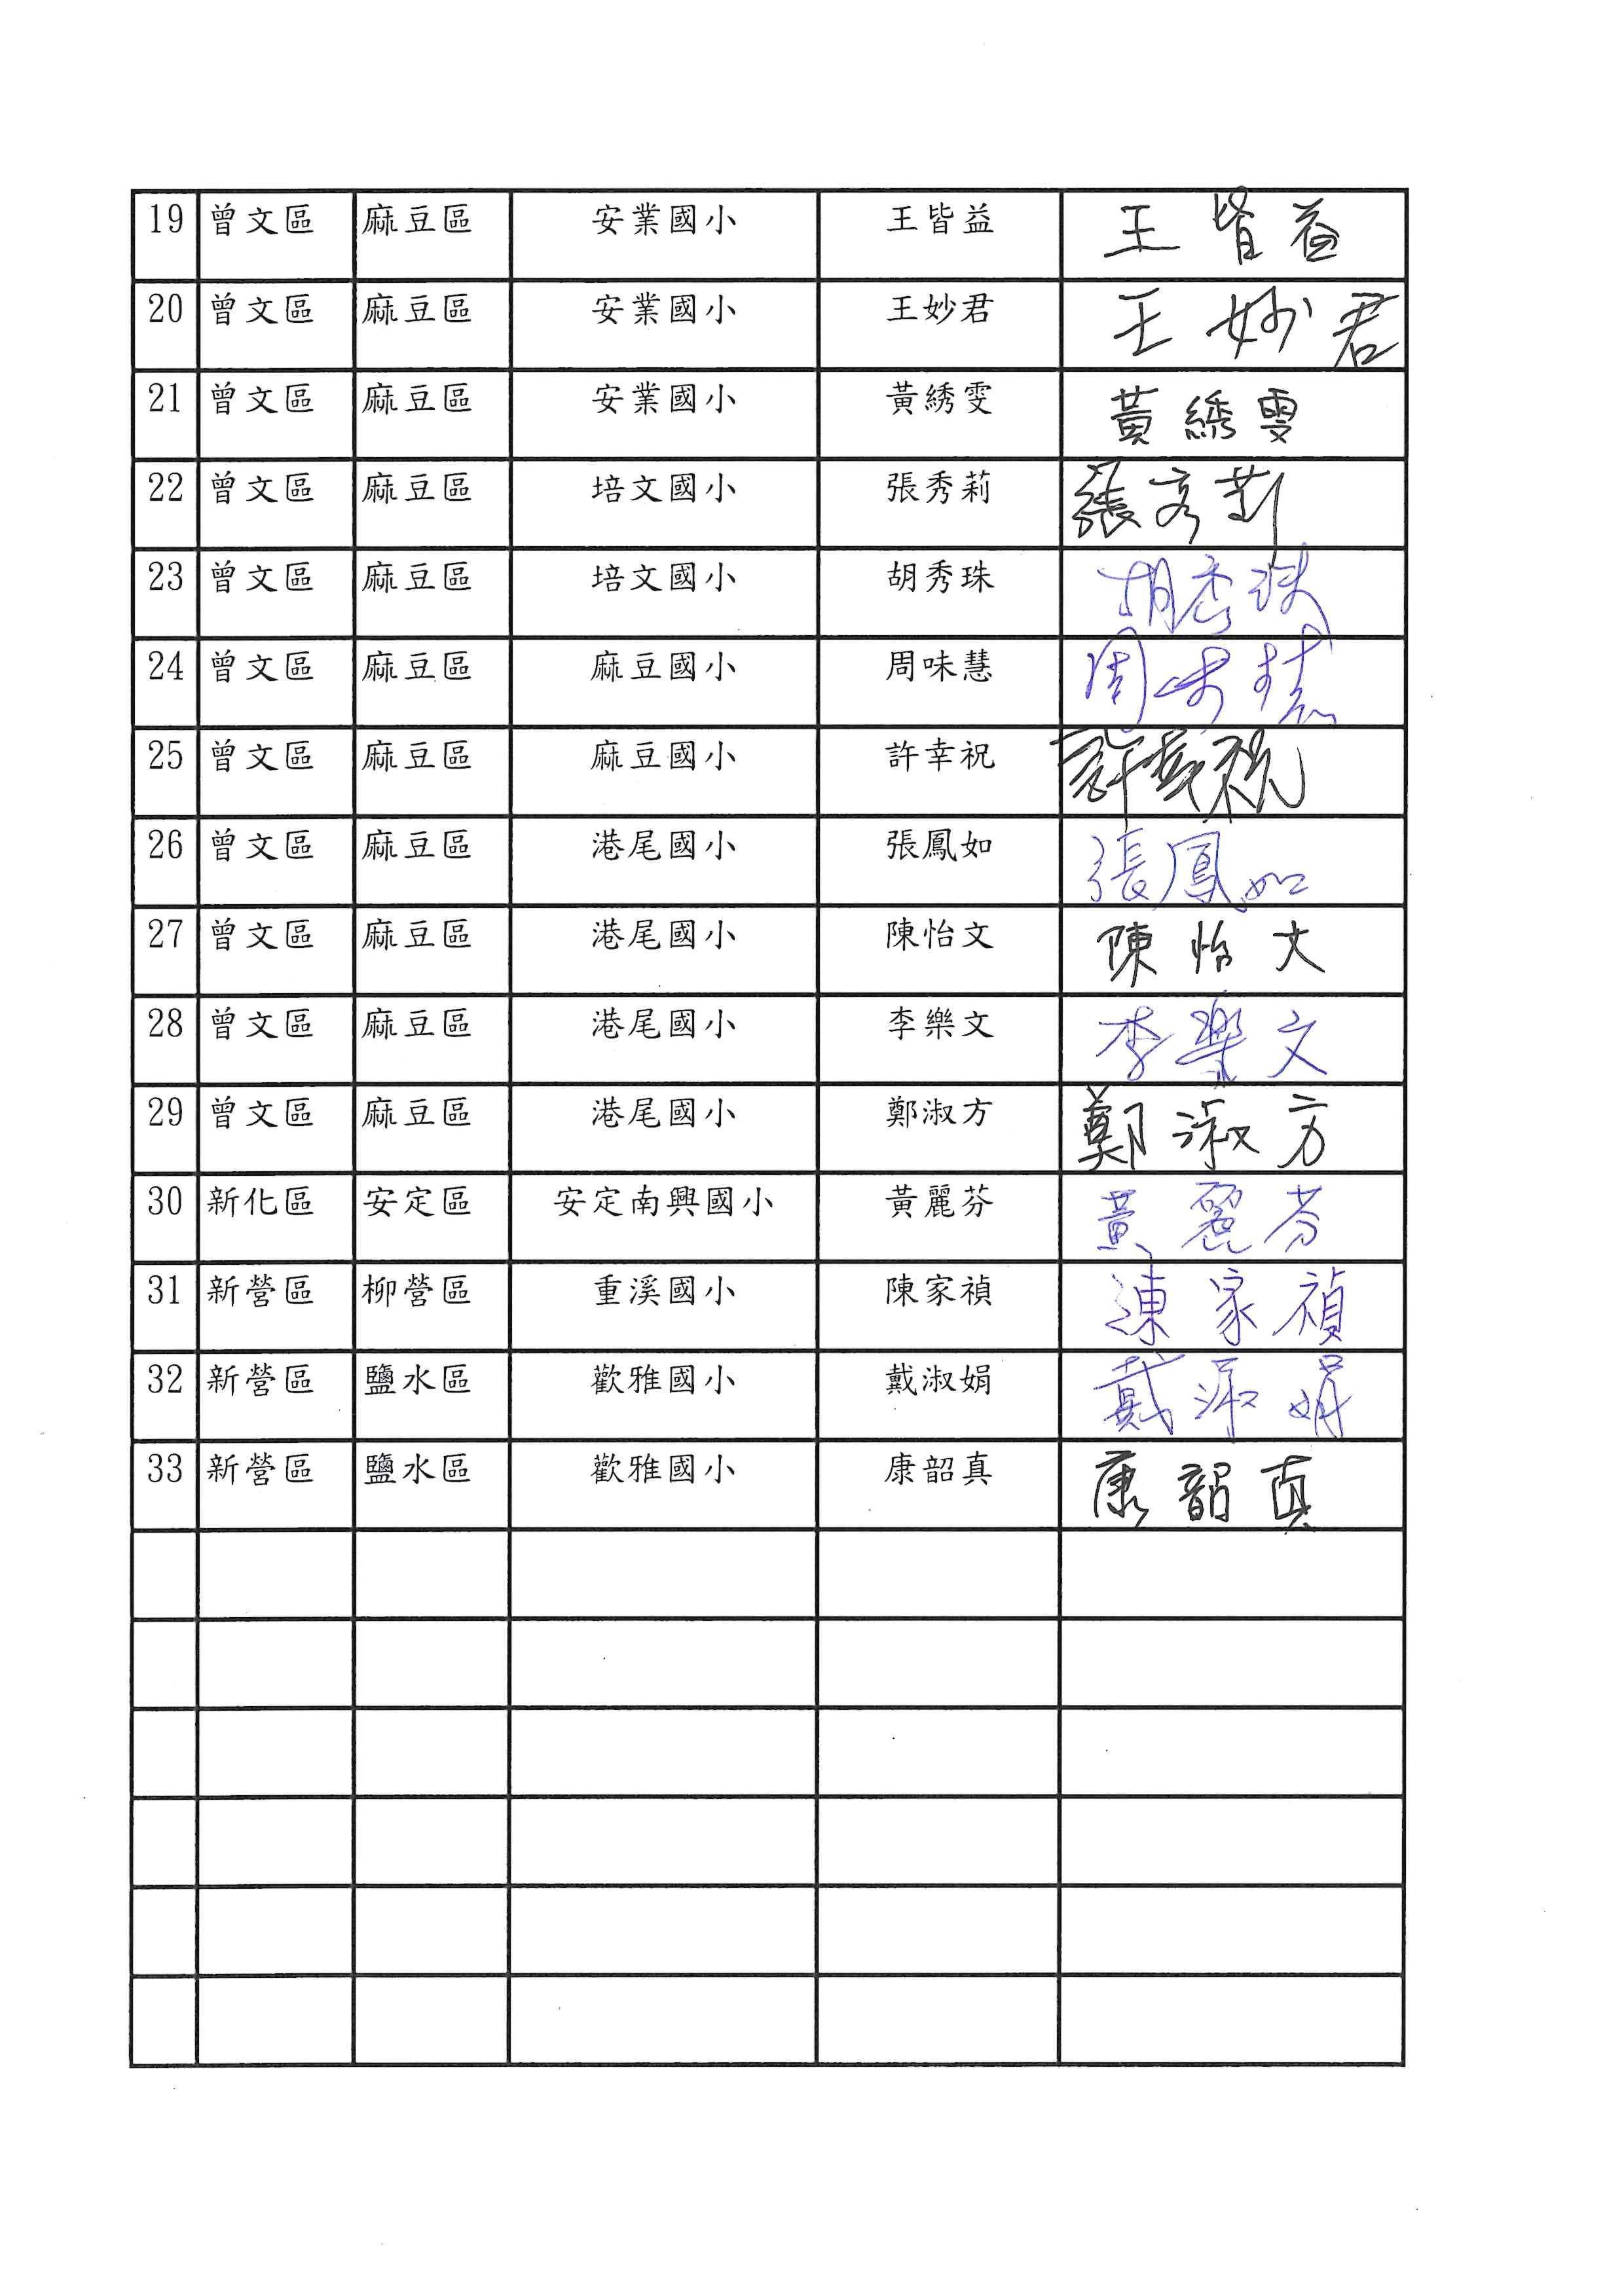 19 曾文區 麻豆區 安業國小 王皆益 王皆益
20 曾文區 麻豆區 安業國小 王妙君 王妙君
21 曾文區 麻豆區 安業國小 黃綉雯 黃綉雯
22 曾文區 麻豆區 培文國小 張秀莉 張秀莉
23 曾文區 麻豆區 培文國小 胡秀珠 胡秀珠
24 曾文區 麻豆區 麻豆國小 周味慧 周味慧
25 曾文區 麻豆區 麻豆國小 許幸祝 許幸祝
26 曾文區 麻豆區 港尾國小 張鳳如 張鳳如
27 曾文區 麻豆區 港尾國小 陳怡文 陳怡文
28 曾文區 麻豆區 港尾國小 李樂文 李樂文
29 曾文區 麻豆區 港尾國小 鄭淑方 鄭淑方
30 新化區 安定區 安定南興國小 黃麗芬 黃麗芬
31 新營區 柳營區 重溪國小 陳家禎 陳家禎
32 新營區 鹽水區 歡雅國小 戴淑娟 戴淑娟
33 新營區 鹽水區 歡雅國小 康韶真 康韶真